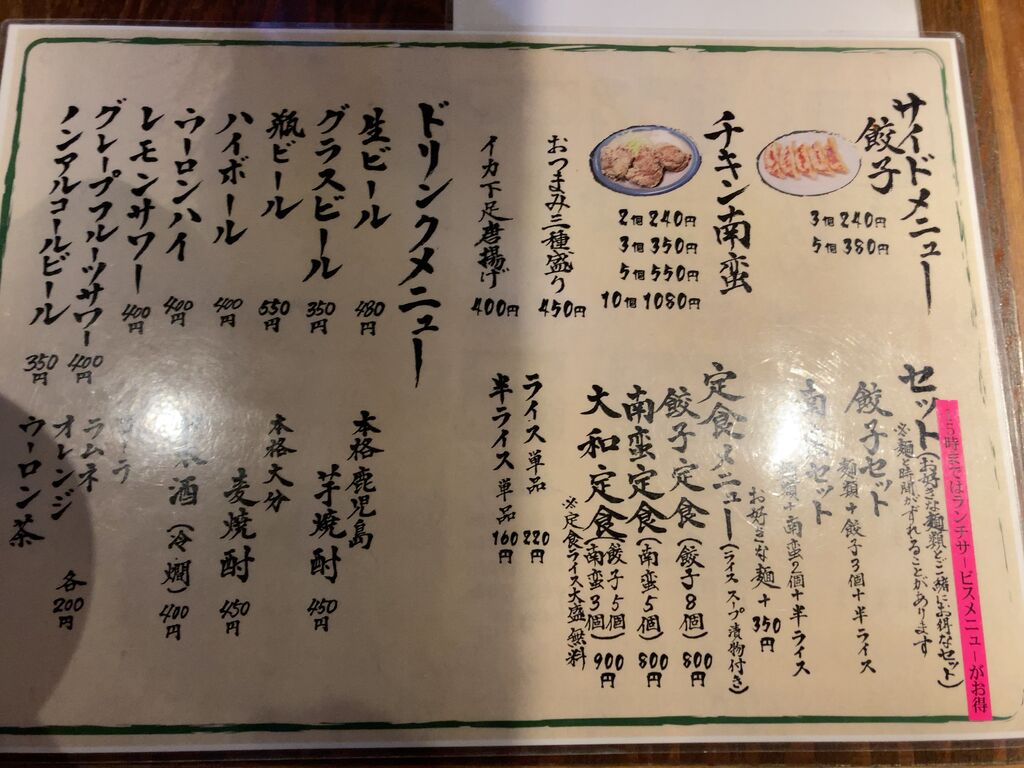 15時まではランチサービスメニューがお得
サイドメニュー
餃子
3個 240円
5個 380円
チキン南蛮
2個 240円
3個 350円
5個 550円
10個 1080円
おつまみ三種盛り 450円
イカ下足唐揚げ 400円
セット(お好きな麺類と一緒にお得なセット)
※麺と時間がずれることがあります
餃子セット
麺類+餃子3個+半ライス
南蛮セット
麺類+南蛮2個+半ライス
お好きな麺+350円
定食メニュー(ライス スープ 漬物付き)
餃子定食(餃子8個) 800円
南蛮定食(南蛮5個) 800円
大和定食(餃子5個 南蛮3個) 900円
※定食ライス大盛無料
ライス単品 220円
半ライス単品 160円
ドリンクメニュー
生ビール 480円
グラスビール 350円
瓶ビール 550円
ハイボール 400円
ウーロンハイ 400円
レモンサワー 400円
グレープフルーツサワー 400円
ノンアルコールビール 350円
本格鹿児島
芋焼酎 450円
本格大分
麦焼酎 450円
酒(冷 燗) 400円
ラムネ
オレンジ
ウーロン茶
各200円